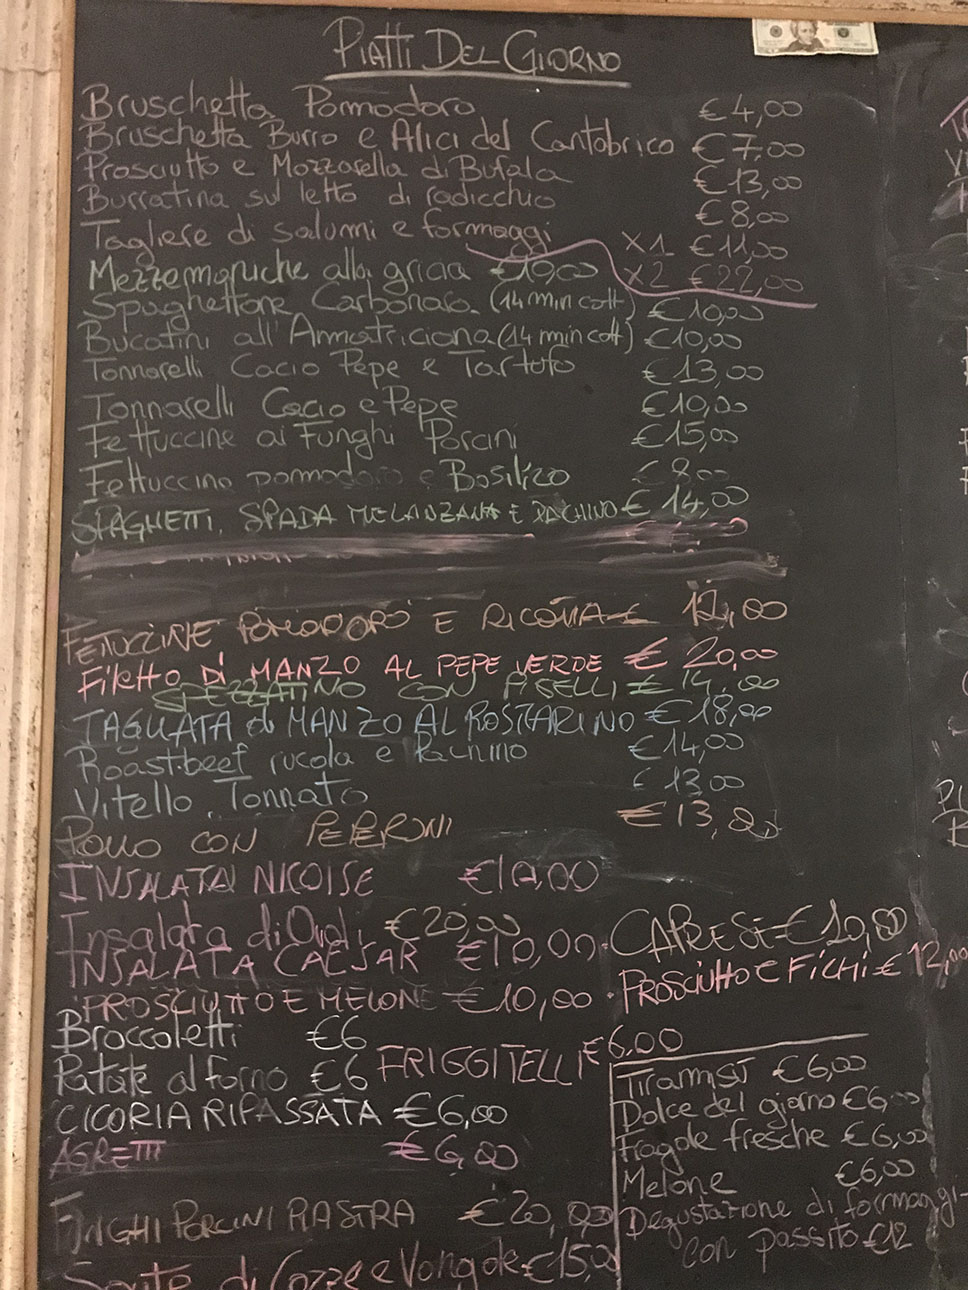 Piatti Del Giorno
Bruschetta Pomodoro €4,00
Bruschetta Burro e Alici del Cantabrico €7,00
Prosciutto e Mozzarella di Bufala €13,00
Burratina sul letto di radicchio €8,00
Tagliere di salumi e formaggi X1 €11,00
X2 €22,00
Mezzemaniche alla gricia €10,00
Spaghettone Carbonara (14 min cott) €10,00
Bucatini all'Amatriciana (14 min cott) €10,00
Tonnarelli Cacio Pepe e Tartufo €13,00
Tonnarelli Cacio e Pepe €10,00
Fettuccine ai Funghi Porcini €15,00
Fettuccine pomodoro e Basilico €8,00
SPAGHETTI, SPADA MELANZANA E PACHINO €14,00
FETTUCCINE POMODORO E RICOTTA € 12,00
Filetto Di MANZO AL PEPE VERDE € 20,00
SPEZZATINO CON PISELLI € 14,00
TAGLIATA di MANZO AL ROSMARINO €18,00
Roastbeef rucola e Pachino €14,00
Vitello Tonnato €13,00
POLLO CON PEPERONI €13,00
INSALATA NICOISE €10,00
Insalata di Ovoli €20,00
CAPRESE €10,00
INSALATA CAESAR €10,00
PROSCIUTTO e FICHI €12,00
PROSCIUTTO E MELONE €10,00
Broccoletti €6
FRIGGITELLI €6,00
Patate al forno €6
CICORIA RIPASSATA €6,00
AGRETTI €6,00
FUNGHI PORCINI PIASTRA €20,00
Sauté di Cozze e Vongole €15,00
Tiramisù €6,00
Dolce del giorno €6,00
Fragole fresche €6,00
Melone €6,00
Degustazione di formaggi
con passito €12